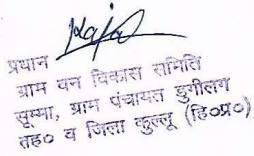 प्रधान
ग्राम वन विकास समिति
सूम्मा, ग्राम पंचायत डुगीलग
तह० व जिला कुल्लू (हि०प्र०)